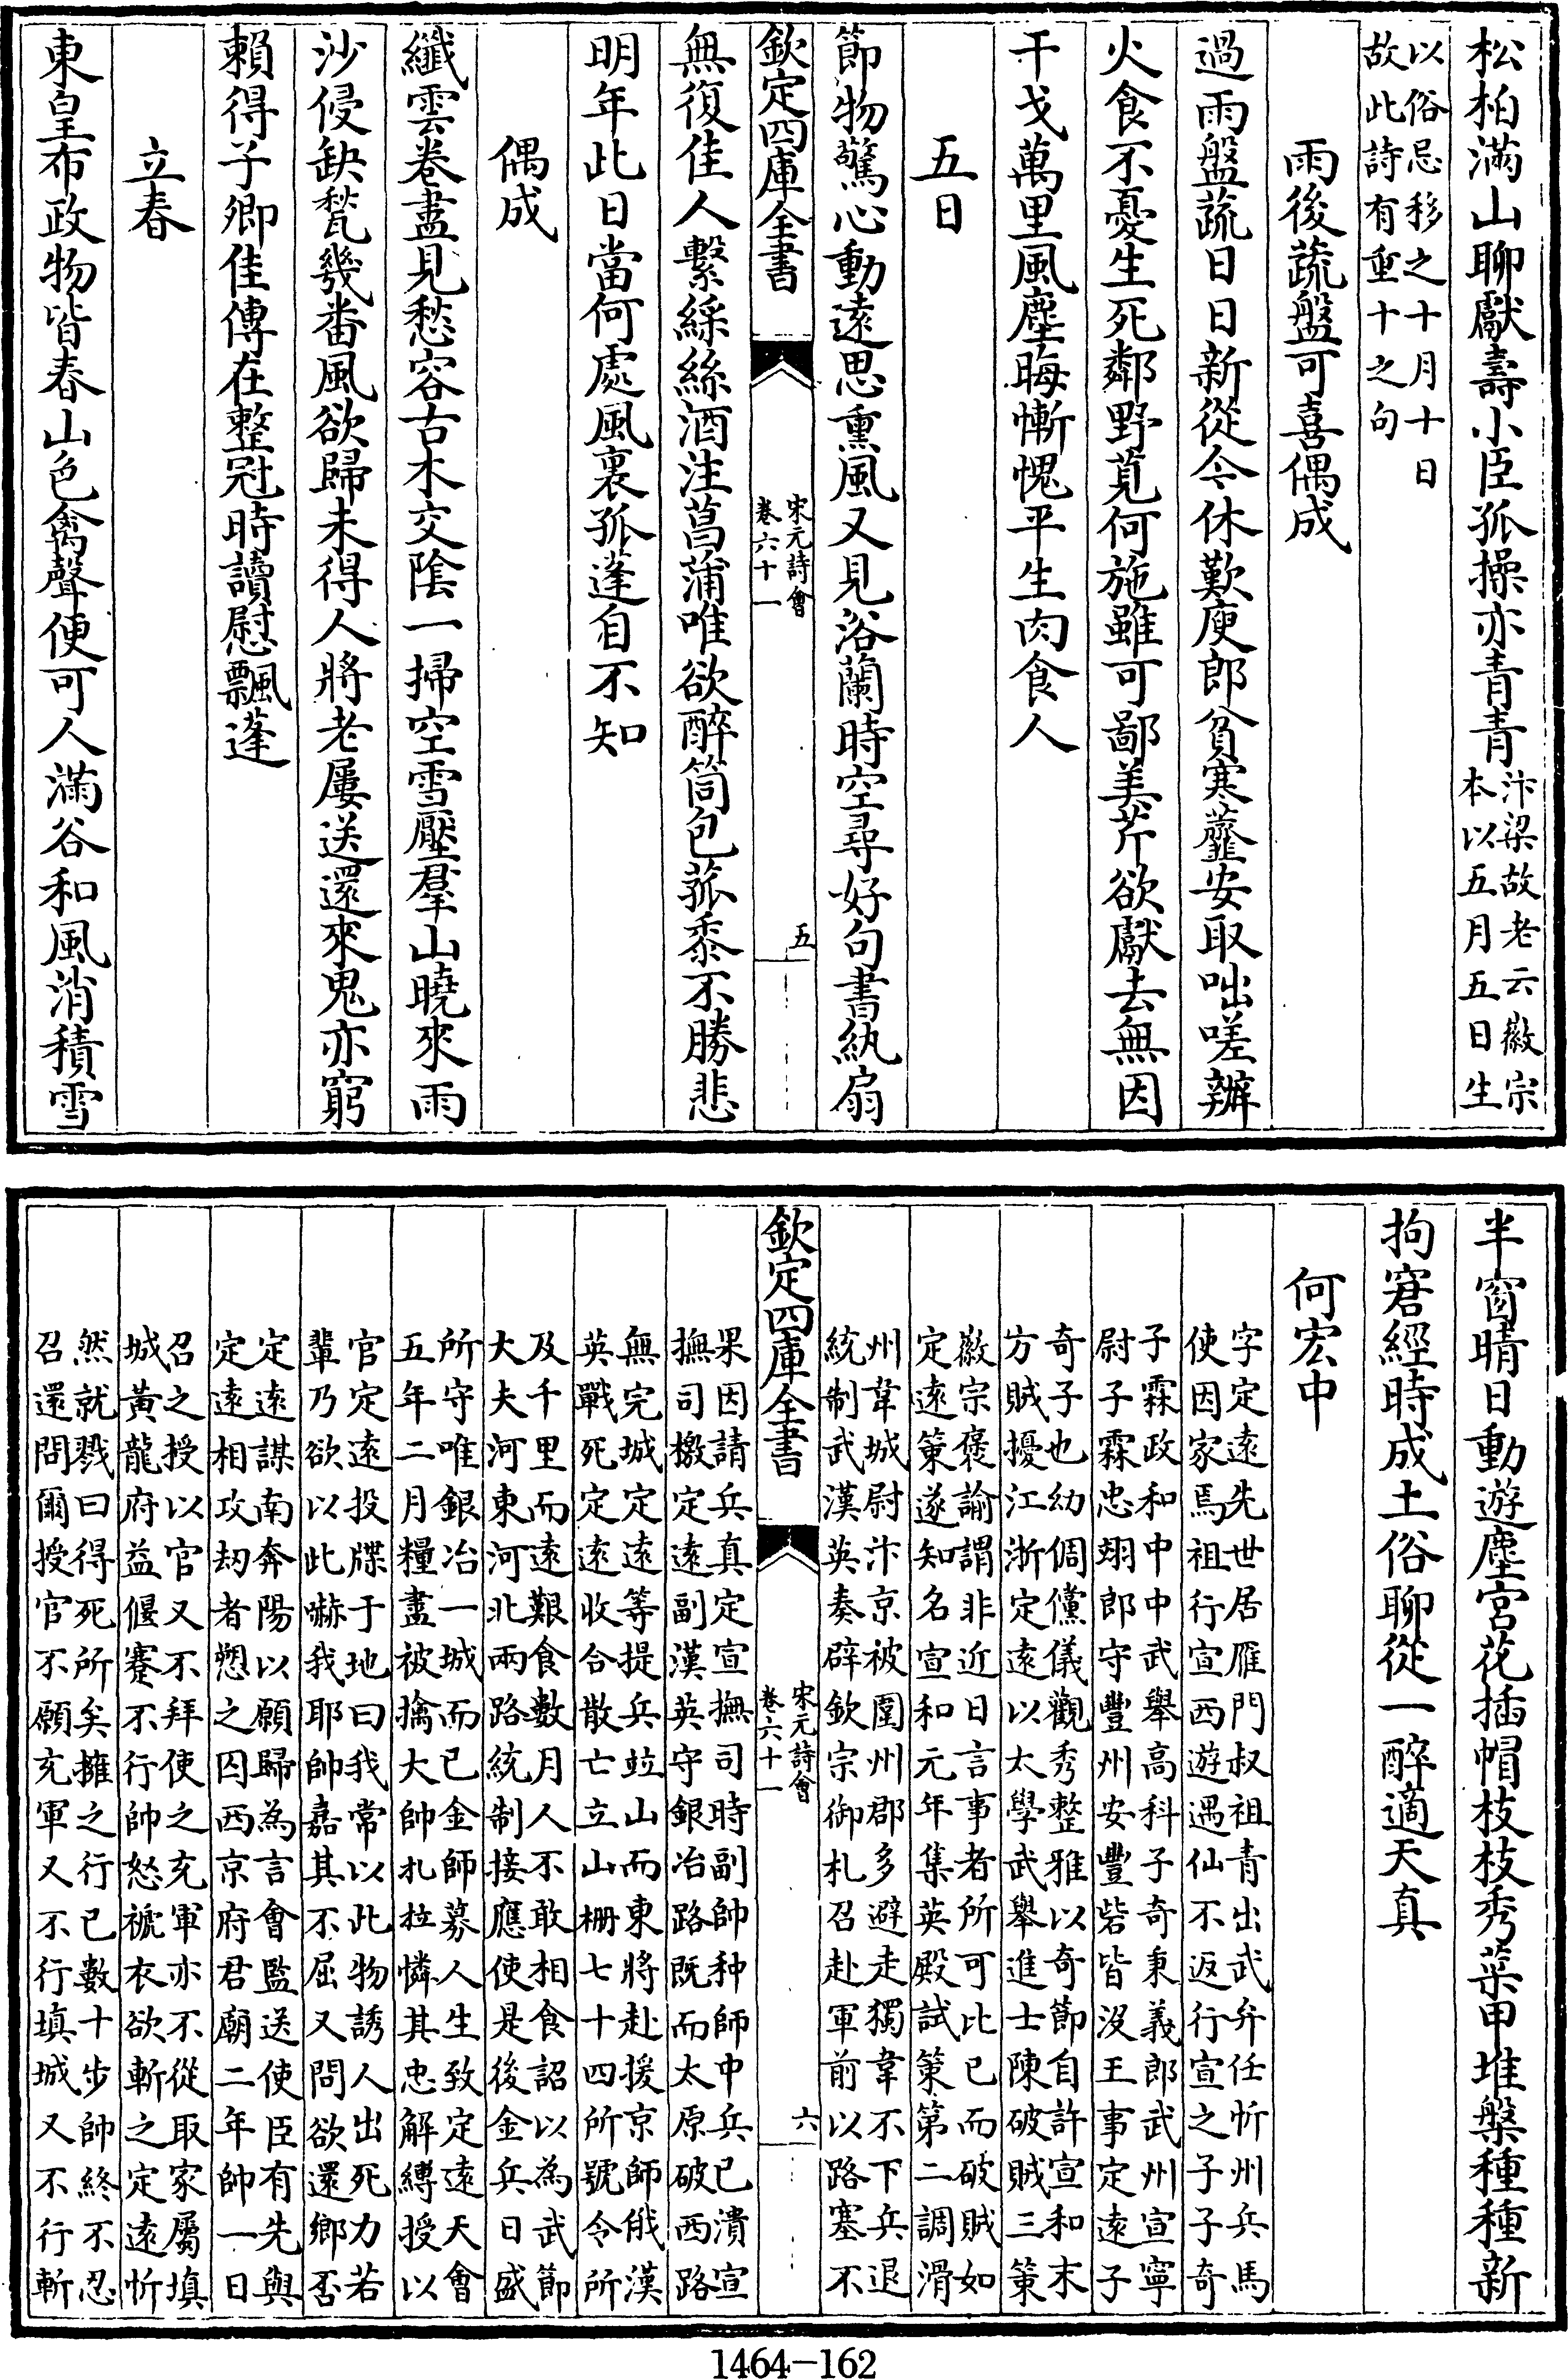 松柏滿山聊獻壽小臣孤操亦青青汴梁故老云徽宗本以五月五日生
以俗忌移之十月十日故此詩有重十之句
雨後蔬盤可喜偶成
過雨盤蔬日日新從今休歎庾郎貧寒虀安取咄嗟辦
火食不憂生死鄰野莧何施雖可鄙美芹欲獻去無因
干戈萬里風塵晦慚愧平生肉食人
五日
節物驚心動遠思熏風又見浴蘭時空尋好句書紈扇
欽定四庫全書
宋元詩會
卷六十一
五
無復佳人繫綵絲酒注菖蒲唯欲醉筒包菰黍不勝悲
明年此日當何處風裏孤蓬自不知
偶成
纖雲卷盡見愁容古木交陰一掃空雪壓羣山曉來雨
沙侵缺甃幾番風欲歸未得人將老屢送還來鬼亦窮
賴得子卿佳傳在整冠時讀慰飄蓬
立春
東皇布政物皆春山色禽聲便可人滿谷和風消積雪
半窗晴日動遊塵宮花插帽枝枝秀菜甲堆槃種種新
拘窘經時成土俗聊從一醉適天真
何宏中
字定遠先世居雁門叔祖青出武弁任忻州兵馬
使因家焉祖行宣西遊遇仙不返行宣之子子奇
子霖政和中中武舉高科子奇秉義郎武州宣寧
尉子霖忠翊郎守豐州安豐砦皆沒王事定遠子
奇子也幼倜儻儀觀秀整雅以奇節自許宣和末
方賊擾江浙定遠以太學武舉進士陳破賊三策
徽宗褒諭謂非近日言事者所可比已而破賊如
定遠策遂知名宣和元年集英殿試策第二調滑
州韋城尉汴京被圍州郡多避走獨韋不下兵退
統制武漢英奏辟欽宗御札召赴軍前以路塞不
欽定四庫全書
宋元詩會
卷六十一
六
果因請兵真定宣撫司時副帥种師中兵已潰宣
撫司檄定遠副漢英守銀冶路既而太原破西路
無完城定遠等提兵竝山而東將赴援京師俄漢
英戰死定遠收合散亡立山柵七十四所號令所
及千里而遠艱食數月人不敢相食詔以為武節
大夫河東河北兩路統制接應使是後金兵日盛
所守唯銀冶一城而已金師募人生致定遠天會
五年二月糧盡被擒大帥札拉憐其忠解縛授以
官定遠投牒于地曰我常以此物誘人出死力若
輩乃欲以此嚇我耶帥嘉其不屈又問欲還鄉否
定遠謀南奔陽以願歸為言會監送使臣有先與
定遠相攻刼者愬之囚西京府君廟二年帥一日
召之授以官又不拜使之充軍亦不從取家屬填
城黃龍府益偃蹇不行帥怒褫衣欲斬之定遠忻
然就戮曰得死所矣擁之行已數十步帥終不忍
召還問爾授官不願充軍又不行填城又不行斬
1464-162